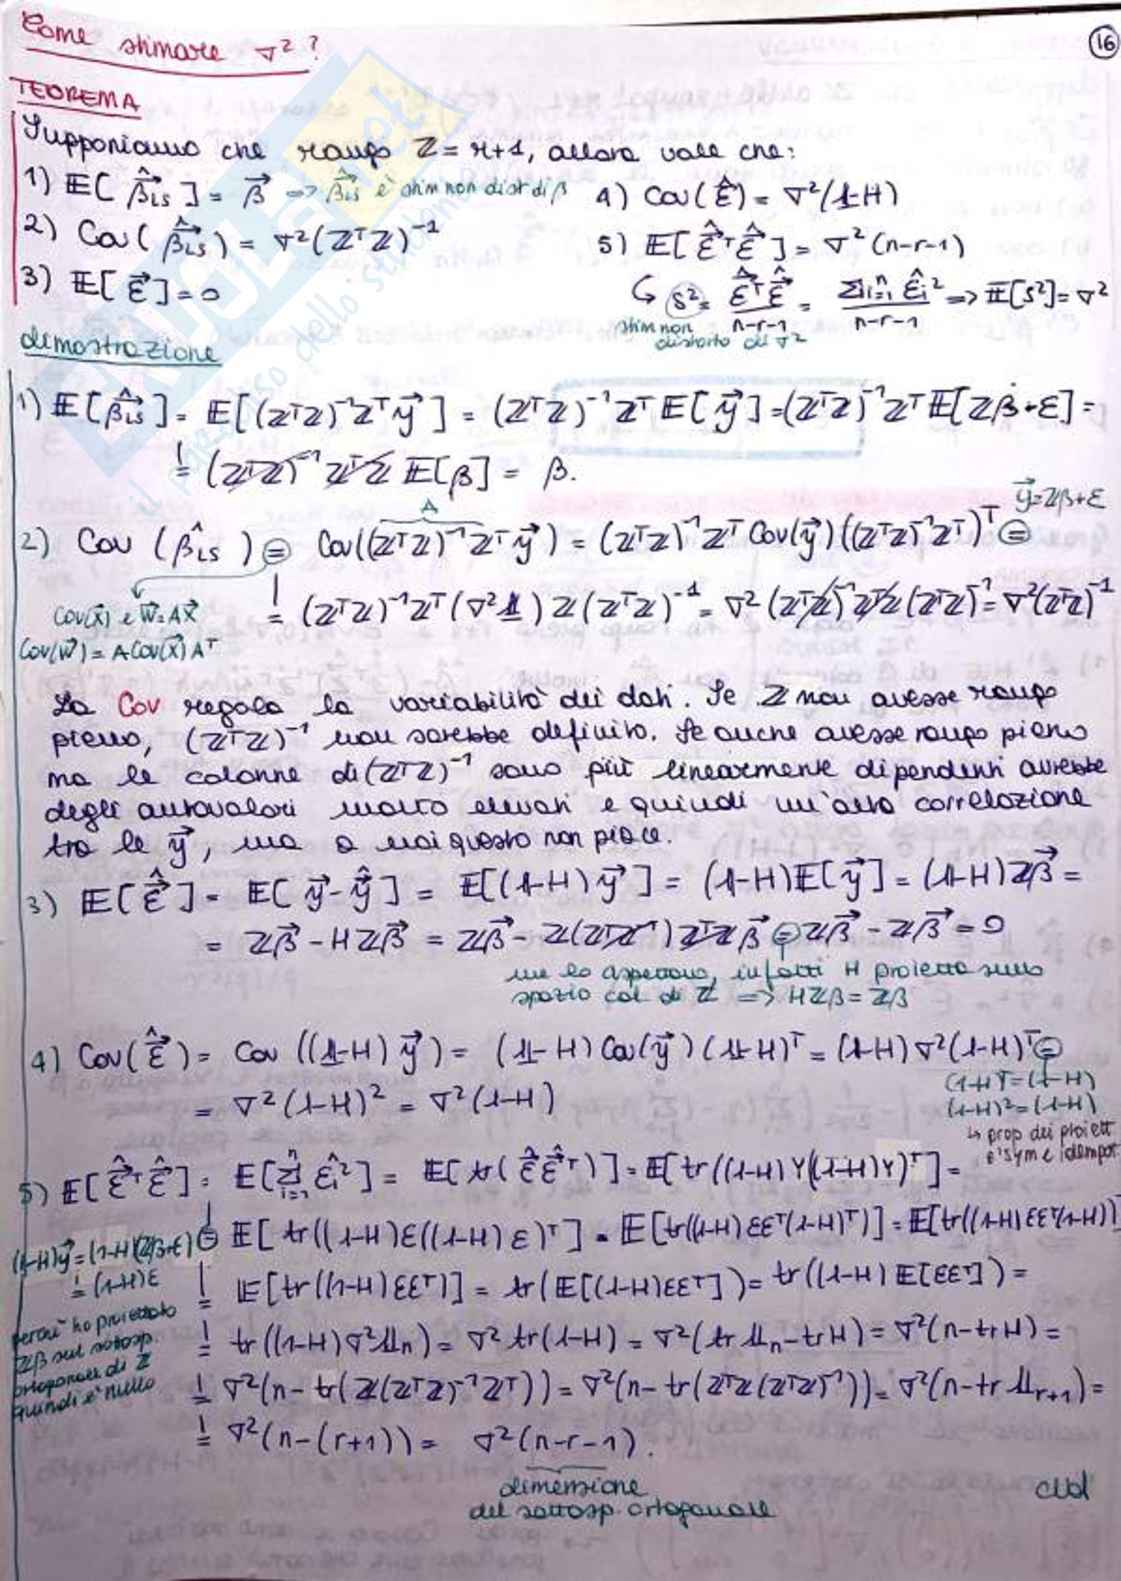 Come stimare σ²?
16
TEOREMA
Supponiamo che rango Z = r+1, allora vale che:
1) E[β̂_LS] = β⃗ => β̂_LS è stim non dist di β
2) Cov(β̂_LS) = σ²(ZᵀZ)⁻¹
3) E[ε⃗] = 0
4) Cov(ε̂) = σ²(1-H)
5) E[ε̂ᵀε̂] = σ²(n-r-1)
↳ S² = ε̂ᵀε̂/(n-r-1) = Σᵢ₌₁ⁿ ε̂ᵢ²/(n-r-1) => E[S²] = σ²
stim non
distorto di σ²
dimostrazione
1) E[β̂_LS] = E[(ZᵀZ)⁻¹Zᵀy⃗] = (ZᵀZ)⁻¹Zᵀ E[y⃗] = (ZᵀZ)⁻¹Zᵀ E[Zβ+ε] =
= (ZᵀZ)⁻¹ZᵀZ E[β] = β.
y⃗ = Zβ+ε
A
2) Cov(β̂_LS) = Cov((ZᵀZ)⁻¹Zᵀy⃗) = (ZᵀZ)⁻¹Zᵀ Cov(y⃗)((ZᵀZ)⁻¹Zᵀ)ᵀ =
= (ZᵀZ)⁻¹Zᵀ(σ²1)Z(ZᵀZ)⁻¹ = σ²(ZᵀZ)⁻¹ZᵀZ(ZᵀZ)⁻¹ = σ²(ZᵀZ)⁻¹
Cov(X⃗) e W⃗=AX⃗
Cov(W⃗) = A Cov(X⃗) Aᵀ
La Cov regola la variabilità dei dati. Se Z non avesse rango
pieno, (ZᵀZ)⁻¹ non sarebbe definito. Se anche avesse rango pieno
ma le colonne di (ZᵀZ)⁻¹ sono più linearmente dipendenti avrebbe
degli autovalori molto elevati e quindi un'alta correlazione
tra le y⃗, ma a noi questo non piace.
3) E[ε̂] = E[y⃗-ŷ] = E[(1-H)y⃗] = (1-H)E[y⃗] = (1-H)Zβ⃗ =
= Zβ⃗ - HZβ⃗ = Zβ⃗ - Z(ZᵀZ⁻¹)ZᵀZβ⃗ = Zβ⃗ - Zβ⃗ = 0
me lo aspettavo, infatti H proietta sullo
spazio col di Z => HZβ = Zβ
4) Cov(ε̂) = Cov((1-H)y⃗) = (1-H)Cov(y⃗)(1-H)ᵀ = (1-H)σ²(1-H)ᵀ =
= σ²(1-H)² = σ²(1-H)
(1-H)ᵀ = (1-H)
(1-H)² = (1-H)
↳ prop dei proiett
è sym e idempot
5) E[ε̂ᵀε̂] = E[Σᵢ₌₁ⁿ ε̂ᵢ²] = E[tr(ε̂ε̂ᵀ)] = E[tr((1-H)Y((1-H)Y)ᵀ] =
= E[tr((1-H)ε((1-H)ε)ᵀ] = E[tr((1-H)εεᵀ(1-H)ᵀ)] = E[tr((1-H)εεᵀ(1-H))]
= E[tr((1-H)εεᵀ)] = tr(E[(1-H)εεᵀ]) = tr((1-H)E[εεᵀ]) =
= tr((1-H)σ²1ₙ) = σ² tr(1-H) = σ²(tr 1ₙ - tr H) = σ²(n - tr H) =
= σ²(n - tr(Z(ZᵀZ)⁻¹Zᵀ)) = σ²(n - tr(ZᵀZ(ZᵀZ)⁻¹)) = σ²(n - tr 1ᵣ₊₁) =
= σ²(n-(r+1)) = σ²(n-r-1).
(1-H)y⃗ = (1-H)(Zβ+ε)
= (1-H)ε
perché ho proiettato
Zβ sul sottosp.
ortogonale di Z
quindi è nullo
dimensione
del sottosp. ortogonale
cvd